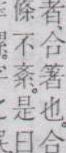 者、合箸也。合
條不紊。是日